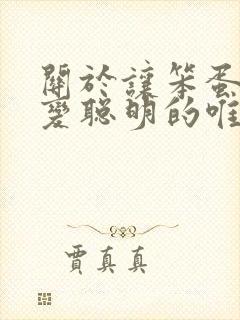 關於讓笨蛋
變聰明的唯
賈真真